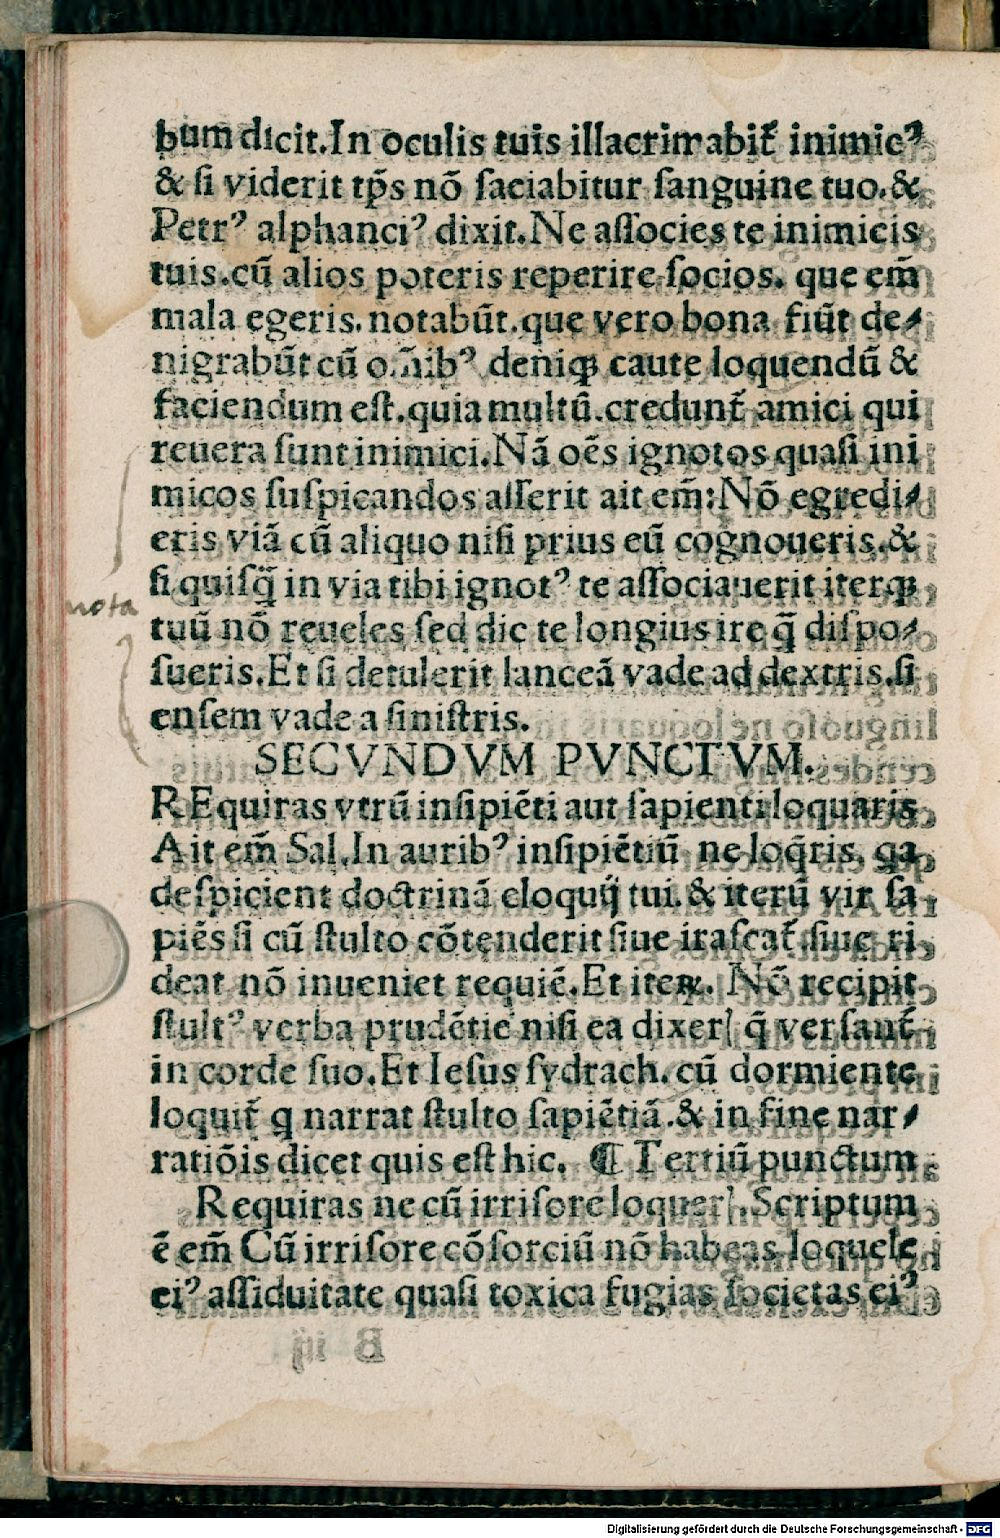 bum dicit.In oculis tuis illacrimabit᷑ inimicꝰ
& ſi viderit tp̄s nō ſaciabitur ſanguine tuo.&
Petrꝰ alphanciꝰ dixit.Ne aſſocies te inimicis
tuis.cū alios poteris reperire ſocios. que em̄
mala egeris. notabūt.que vero bona fiūt de⸗
nigrabūt cū o.n̄ibꝰ deniqꝫ caute loquendū &
faciendum eſt.quia multū.credunt᷑ amici qui
reuera ſunt inimici.Nā oēs ignotos quaſi ini
micos ſuſpicandos aſſerit ait em̄:Nō egredi⸗
eris viā cū aliquo niſi prius eū cognoueris.&
ſi quiſq̄ in via tibi ignotꝰ te aſſociauerit iterqꝫ
nota
tuū nō reueles ſed dic te longius ire q̄ diſpo⸗
ſueris.Et ſi detulerit lanceā vade ad dextris.ſi
enſem vade a ſiniſtris.
SECVNDVM PVNCTVM.
REquiras vtrū inſipiēti aut ſapienti loquaris
Ait em̄ Sal.In auribꝰ inſipiētiū ne loq̄ris, qa
deſpicient doctrinā eloquij tui.& iterū vir ſa
piēs ſi cū ſtulto cōtenderit ſiue iraſcat᷑.ſiue ri
deat nō inueniet requiē.Et iteꝝ. Nō recipit
ſtultꝰ verba prudētie niſi ea dixerꝭ q̄ verſant᷑
in corde ſuo.Et Ieſus ſydrach.cū dormiente
loquit᷑ q narrat ſtulto ſapiētiā.& in fine nar⸗
ratiōis dicet quis eſt hic. ¶ Tertiū punctum
Requiras ne cū irriſore loquerꝭ.Scriptum
ē em̄ Cū irriſore cōſorciū nō habeas loquele
eiꝰ aſſiduitate quaſi toxica fugias ſocietas eiꝰ
Digitalisierung gefördert durch die Deutsche Forschungsgemeinschaft - DFG